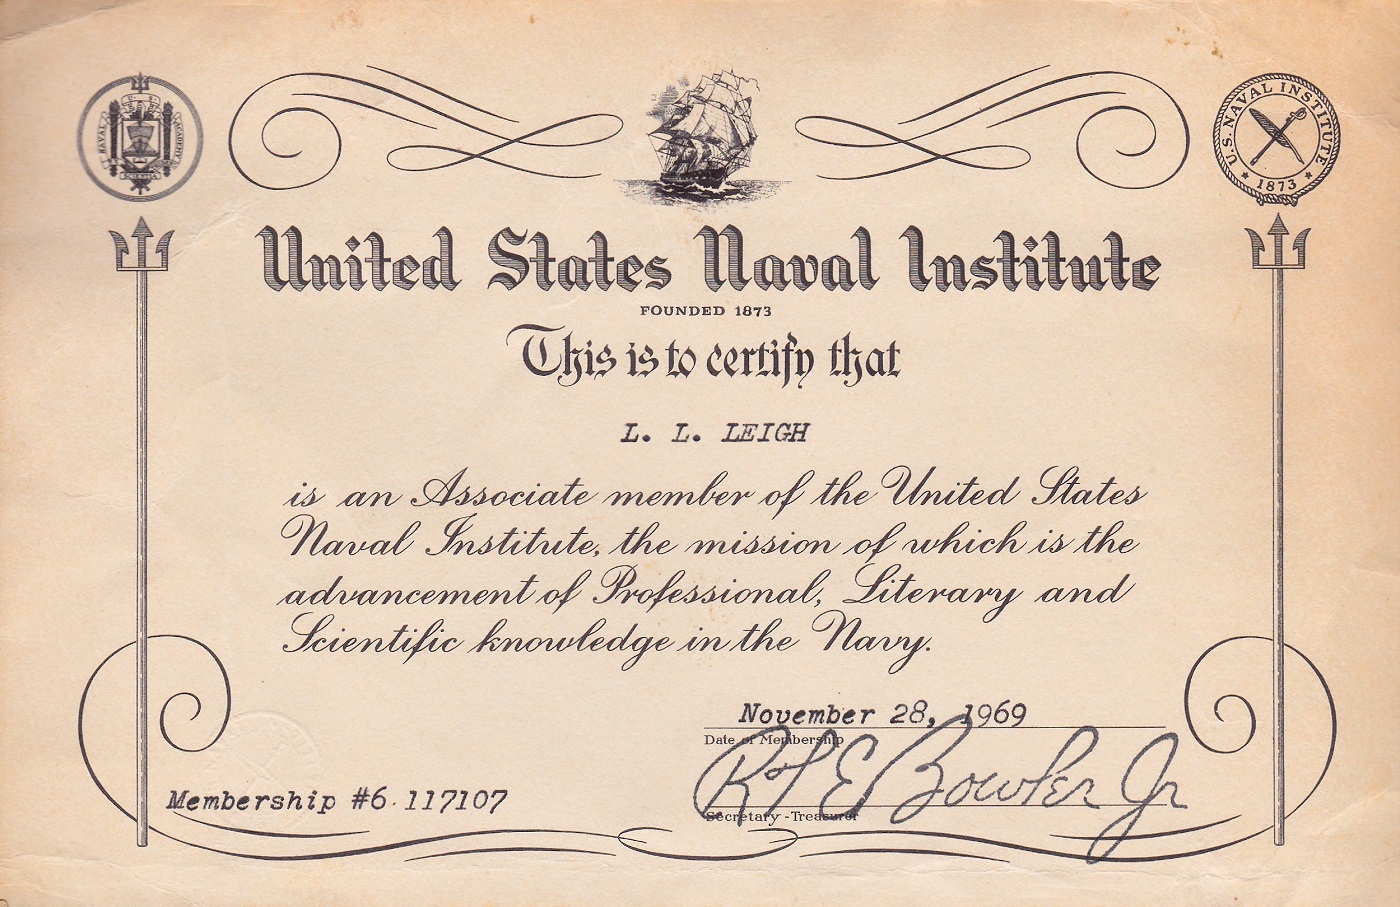 U.S. NAVAL ACADEMY
U.S. NAVAL INSTITUTE
★ 1873 ★
United States Naval Institute
FOUNDED 1873
This is to certify that
L. L. LEIGH
is an Associate member of the United States
Naval Institute, the mission of which is the
advancement of Professional, Literary and
Scientific knowledge in the Navy.
November 28, 1969
Date of Membership
R T E Bowler Jr
Membership #6 117107
Secretary-Treasurer